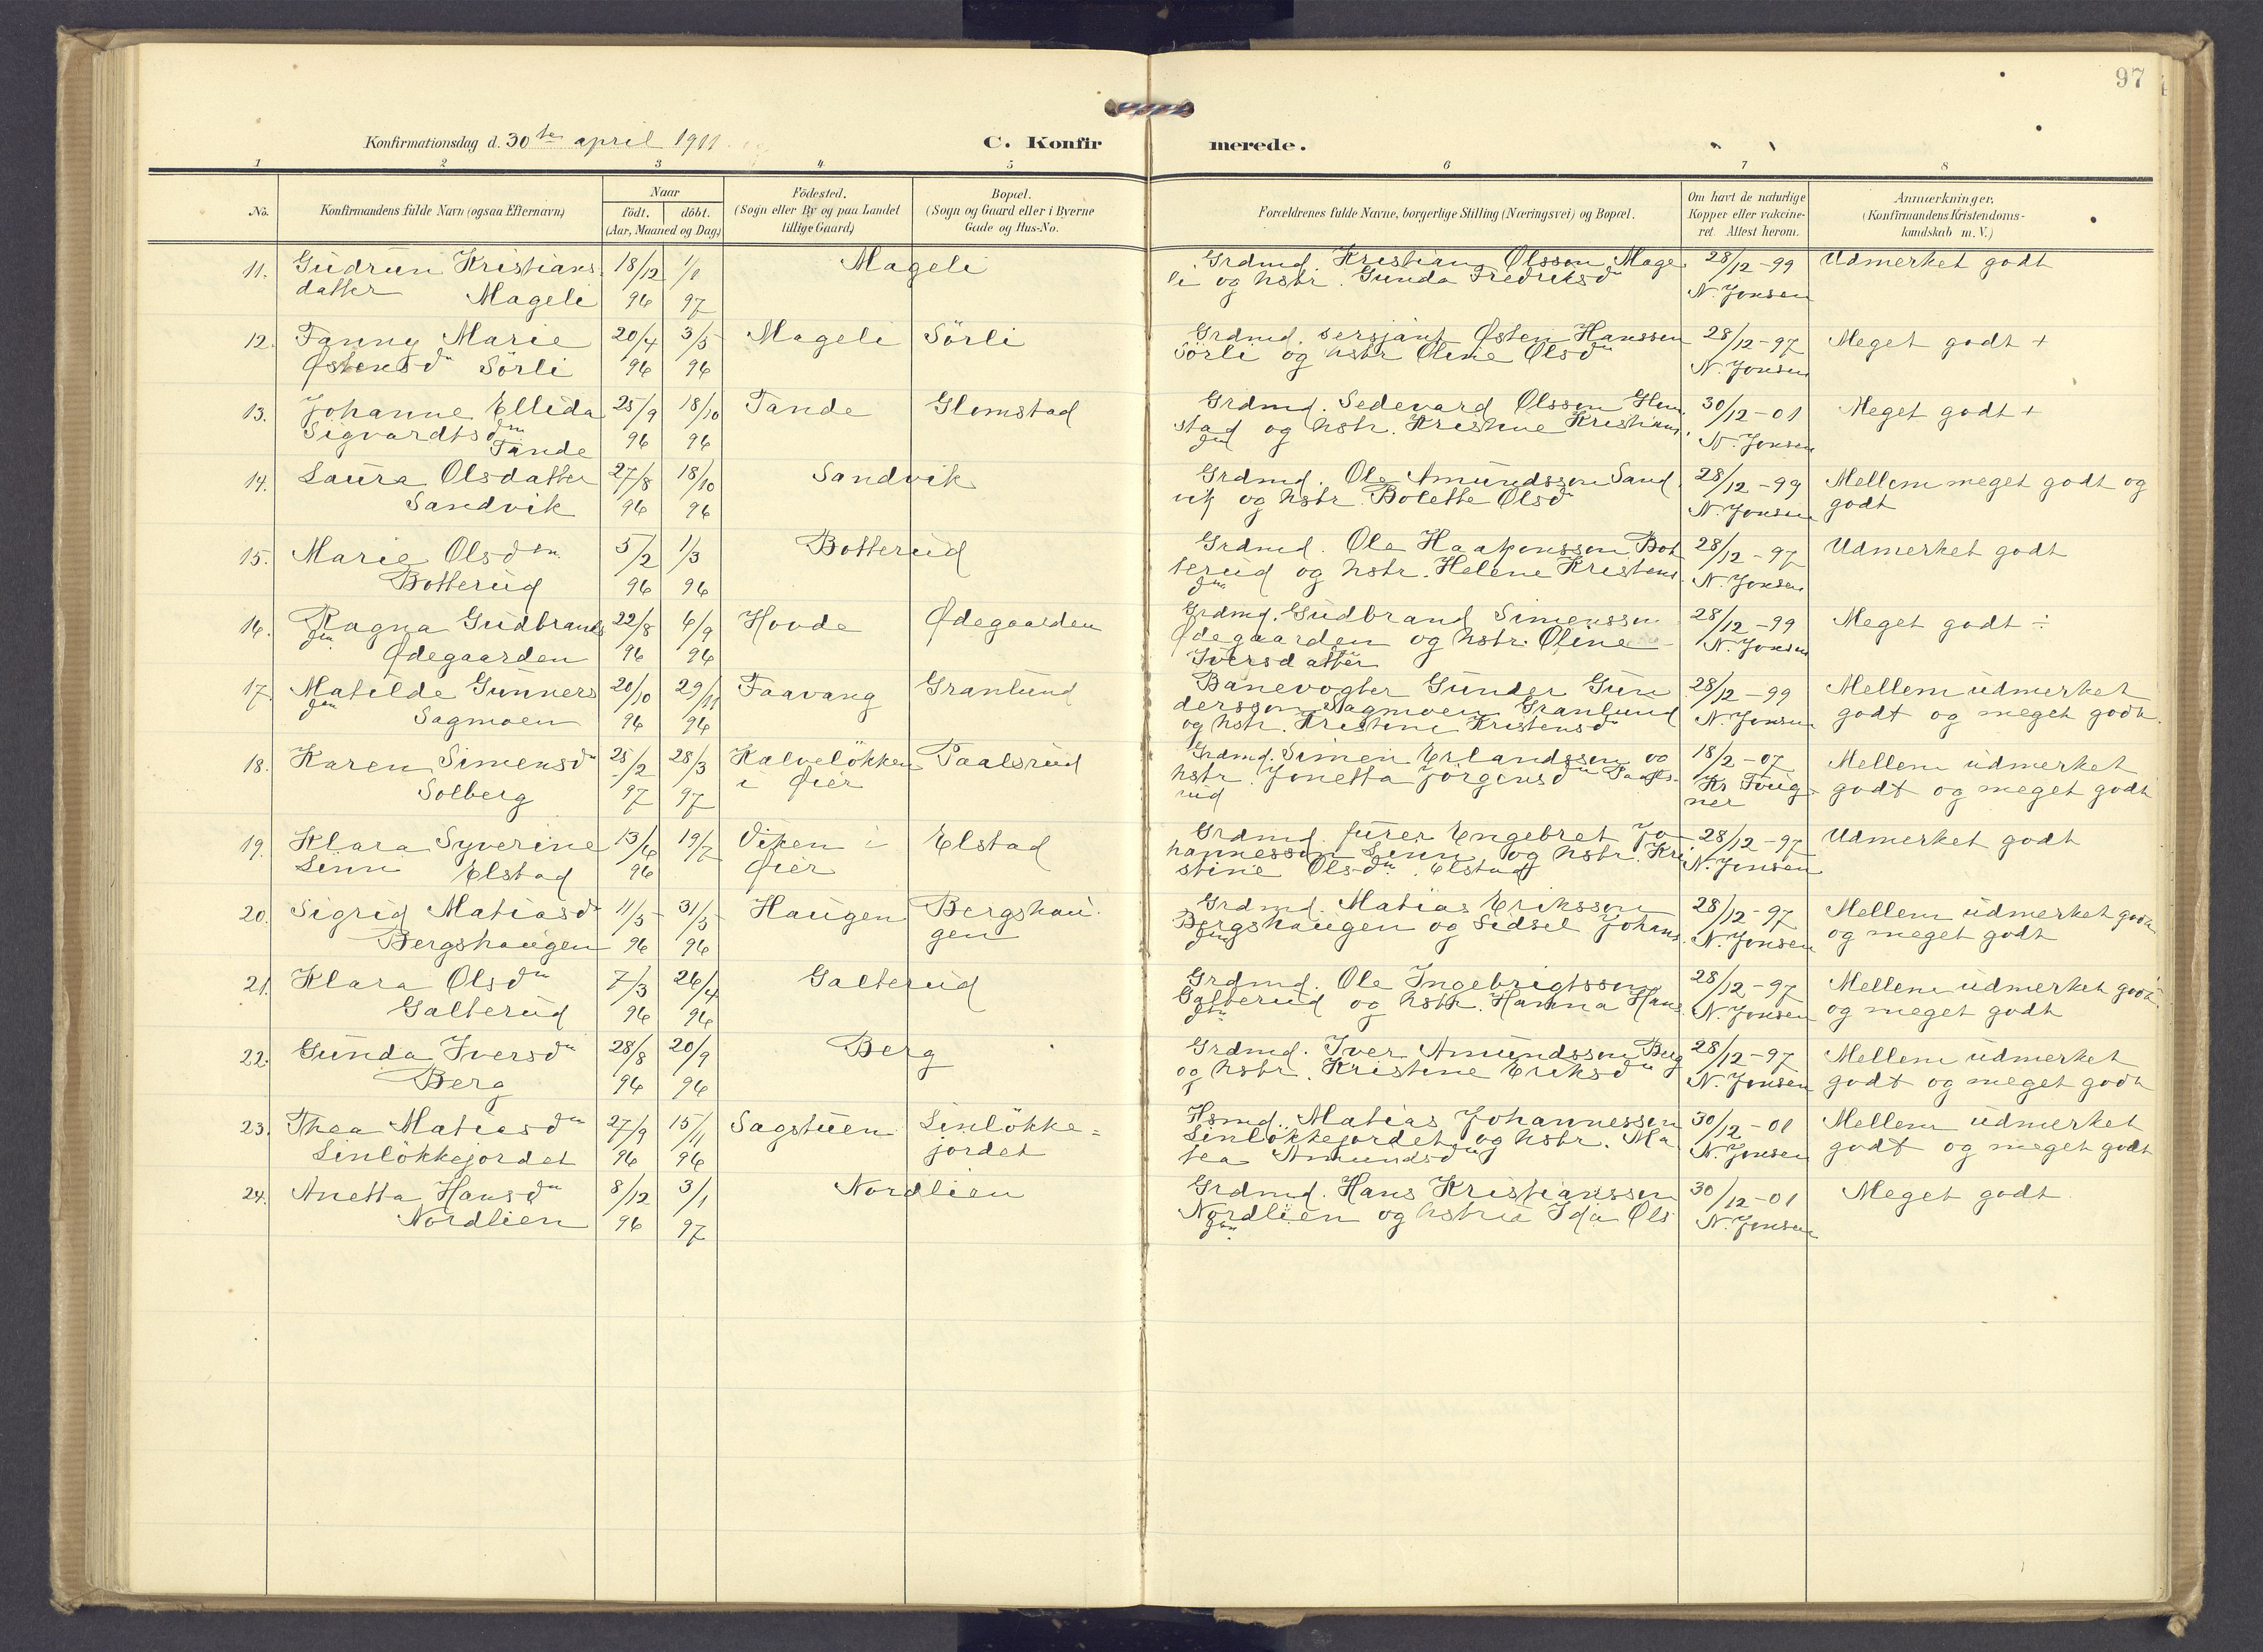 97
Konfirmationsdag d. 30te april 1911
C. Konfirmerede.
1 2 3 4 5 6 7 8
No.
Konfirmandens fulde Navn (ogsaa Efternavn)
Naar
födt. döbt.
(Aar, Maaned og Dag)
Födested.
(Sogn eller By og paa Landet
tillige Gaard)
Bopæl.
(Sogn og Gaard eller i Byerne
Gade og Hus-No.
Forældrenes fulde Navne, borgerlige Stilling (Næringsvei) og Bopæl.
Om havt de naturlige
Kopper eller vakcine-
ret. Attest herom.
Anmærkninger.
(Konfirmandens Kristendoms-
kundskab m. V.)
11. Gudrun Kristians 18/12 1/1 Mageli Grdmd. Kristian Olsson Mage 28/12-99 Udmerket godt
datter Mageli 96 97 li og hstr. Gunda Fredriksdtr N. Jonsen
12. Fanny Marie 20/4 3/5 Mageli Sörli Grdmd. sersjant Østen Hanssen 28/12-97 Meget godt +
Østensdtr Sörli 96 96 Sörli og hstr Oline Olsdtr N. Jonsen
13. Johanne Ellida 25/9 18/10 Tande Glomstad Grdmd. Sedevard Olsson Glom 30/12-01 Meget godt +
Sigvardtsdtr 96 96 stad og hstr. Kristine Kristians N. Jonsen
Tande dtr
14. Laura Olsdatter 27/8 18/10 Sandvik Grdmd. Ole Amundsson Sand 28/12-99 Mellem meget godt og
Sandvik 96 96 vik og hstr. Bolette Olsdtr N. Jonsen godt
15. Marie Olsdtr 5/2 1/3 Botterud Grdmd. Ole Haakonsson Bot 28/12-97 Udmerket godt
Botterud 96 96 terud og hstr. Helene Kristens N. Jonsen
dtr
16. Ragna Gudbrands 22/8 6/9 Hovde Ødegaarden Grdmd. Gudbrand Simensson 28/12-99 Meget godt ÷
dtr Ødegaarden 96 96 Ødegaarden og hstr. Oline N. Jonsen
Iversdatter
17. Matilde Gunners 20/10 29/11 Faavang Granlund Banevogter Gunder Gun 28/12-99 Mellem udmerket
dtr Sagmoen 96 96 dersson Sagmoen Granlund N. Jonsen godt og meget godt.
og hstr. Kristine Kristensdtr
18. Karen Simensdtr 25/2 28/3 Kalvelökken Paalsrud Grdmd. Simen Erlandsson og 18/2-07 Mellem udmerket
Solberg 97 97 i Øier hstr. Jonetta Jörgensdtr Paals- Kr Foug- godt og meget godt
rud ner
19. Klara Syverine 13/6 19/7 Viken i Elstad Grdmd. furer Engebret Jo 28/12-97 Udmerket godt
Linni Elstad 96 Øier hannesson Linni og hstr. Kri N. Jonsen
stine Olsdtr Elstad
20. Sigrid Matiasdtr 11/5 31/5 Haugen Bergshau- Grdmd. Matias Eriksson 28/12-97 Mellem udmerket godt
Bergshaugen 96 96 gen Bergshaugen og Sidsel Johans N. Jonsen og meget godt
dtr
21. Klara Olsdtr 7/3 26/4 Galterud Grdmd. Ole Ingebrigtsson 28/12-97 Mellem udmerket godt
Galterud 96 96 Galterud og hstr. Hanna Hans N. Jonsen og meget godt
dtr
22. Gunda Iversdtr 28/8 20/9 Berg Grdmd. Iver Amundsson Berg 28/12-97 Mellem udmerket
Berg 96 96 og hstr. Kristine Eriksdtr N. Jonsen godt og meget godt
23. Thea Matiasdtr 27/9 15/11 Sagstuen Linlökke- Hsmd. Matias Johannesson 30/12-01 Mellem udmerket
Linlökkejordet 96 96 jordet Linlökkejordet og hstr. Ma N. Jonsen godt og meget godt
tea Amundsdtr
24. Anetta Hansdtr 8/12 3/1 Nordlien Grdmd. Hans Kristiansson 30/12-01 Meget godt
Nordlien 96 97 Nordlien og hstru Ida Ols N. Jonsen
dtr